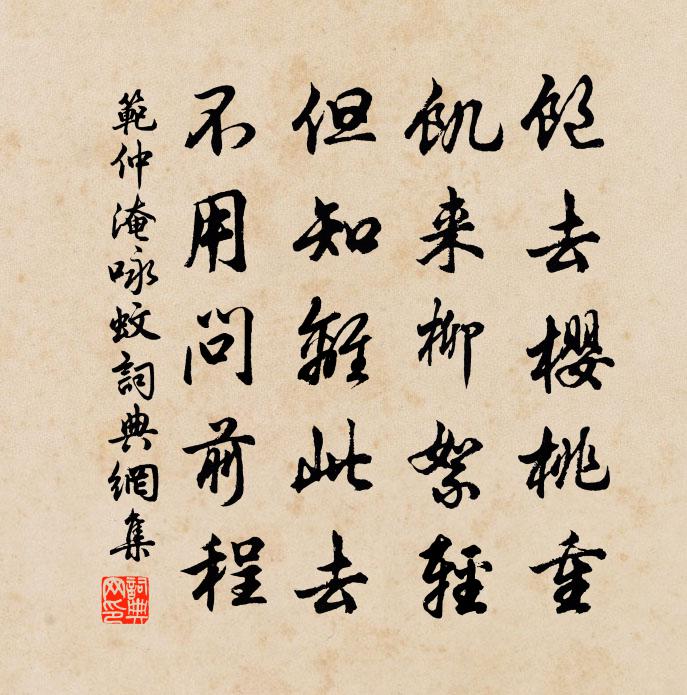 飽去櫻桃重
飢来柳絮輕
但知離此去
不用問前程
範仲淹咏蚊詞典網集
詞典网印